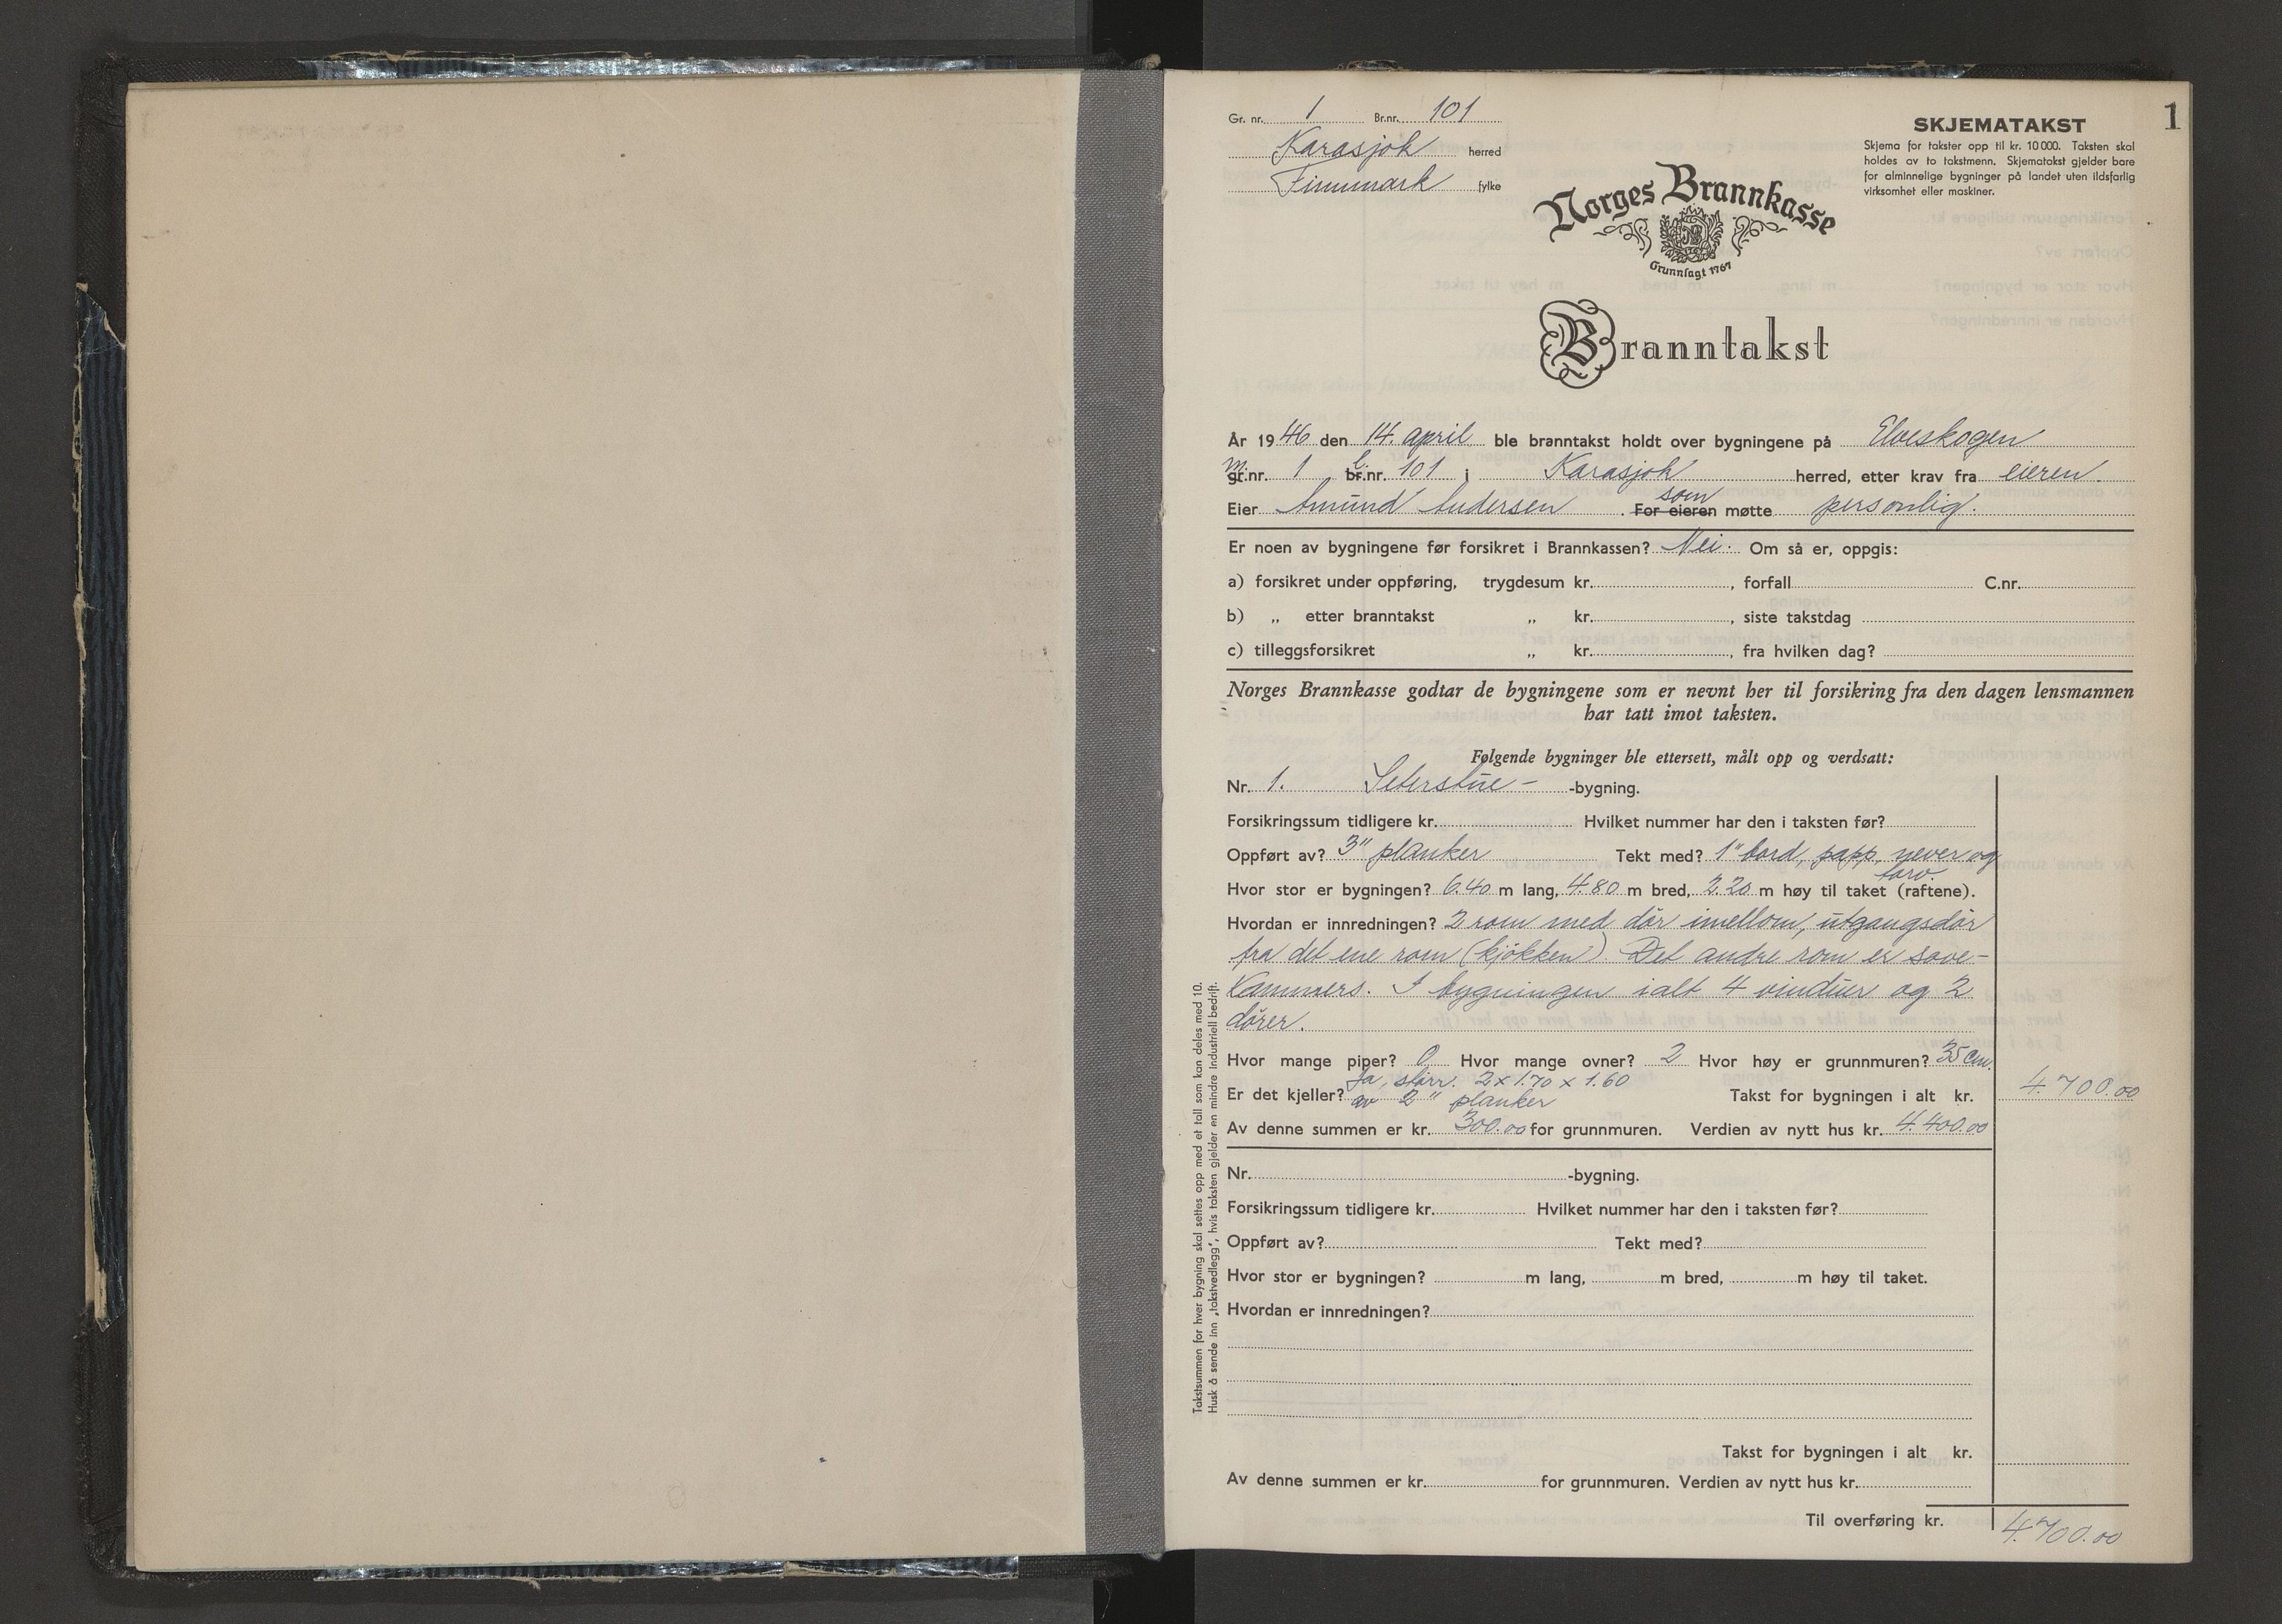 1
Gr. nr. 1 Br.nr. 101
Karasjok herred
Finnmark fylke
SKJEMATAKST
Skjema for takster opp til kr. 10 000. Taksten skal
holdes av to takstmenn. Skjematakst gjelder bare
for alminnelige bygninger på landet uten ildsfarlig
virksomhet eller maskiner.
Norges Brannkasse
Grunnlagt 1767
Branntakst
År 1946 den 14. april ble branntakst holdt over bygningene på Elveskogen
m. gr.nr. 1 l. br.nr. 101 i Karasjok herred, etter krav fra eieren.
Eier Amund Andersen . For eieren som møtte personlig.
Er noen av bygningene før forsikret i Brannkassen? Nei. Om så er, oppgis:
a) forsikret under oppføring, trygdesum kr. , forfall C.nr.
b) „ etter branntakst „ kr. , siste takstdag
c) tilleggsforsikret „ kr. , fra hvilken dag?
Norges Brannkasse godtar de bygningene som er nevnt her til forsikring fra den dagen lensmannen
har tatt imot taksten.
Følgende bygninger ble ettersett, målt opp og verdsatt:
Nr. 1. Seterstue- -bygning.
Forsikringssum tidligere kr. Hvilket nummer har den i taksten før?
Oppført av? 3" planker Tekt med? 1" bord, papp, never og
torv.
Hvor stor er bygningen? 6.40 m lang, 4.80 m bred, 2.20 m høy til taket (raftene).
Hvordan er innredningen? 2 rom med dör imellom, utgangsdör
fra det ene rom (kjökken). Det andre rom er sove-
kammers. I bygningen ialt 4 vinduer og 2
dörer.
Hvor mange piper? 0 Hvor mange ovner? 2 Hvor høy er grunnmuren? 35 cm.
Er det kjeller? Ja, störr. 2 x 1.70 x 1.60
av 2" planker Takst for bygningen i alt kr. 4.700.00
Av denne summen er kr. 300.00 for grunnmuren. Verdien av nytt hus kr. 4.400.00
Nr. -bygning.
Forsikringssum tidligere kr. Hvilket nummer har den i taksten før?
Oppført av? Tekt med?
Hvor stor er bygningen? m lang, m bred, m høy til taket.
Hvordan er innredningen?
Takst for bygningen i alt kr.
Av denne summen er kr. for grunnmuren. Verdien av nytt hus kr.
Til overføring kr. 4.700.00
Takstsummen for hver bygning skal settes opp med et tall som kan deles med 10.
Husk å sende inn „takstvedlegg", hvis taksten gjelder en mindre industriell bedrift.